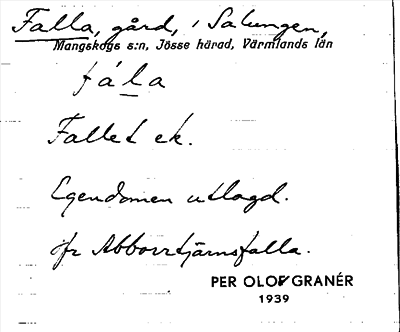 Falla, gård, i Salungen,
Mangskogs s:n, Jösse härad, Värmlands län
fála
Fallet ek.
Egendomen utlagd.
jfr Abborrtjärnsfalla.
PER OLOF GRANÉR
1939